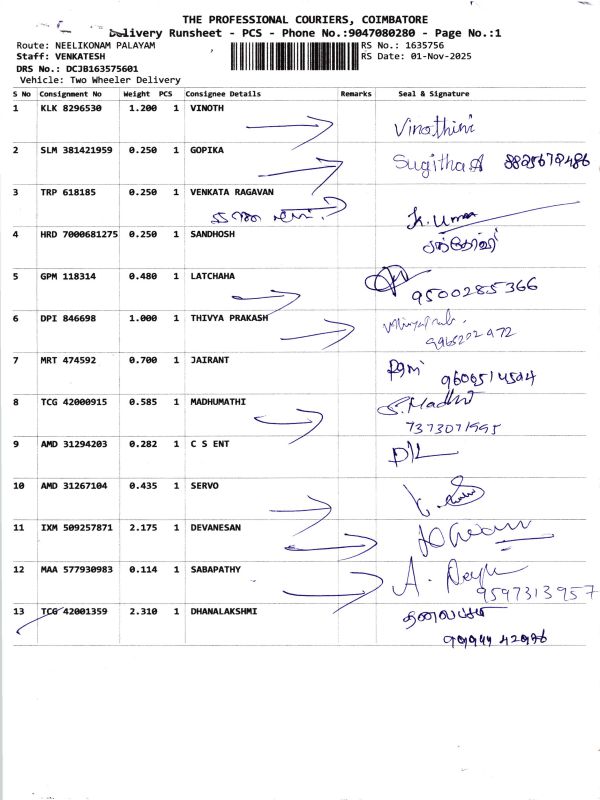 THE PROFESSIONAL COURIERS, COIMBATORE
Delivery Runsheet - PCS - Phone No.:9047080280 - Page No.:1
Route: NEELIKONAM PALAYAM RS No.: 1635756
Staff: VENKATESH RS Date: 01-Nov-2025
DRS No.: DCJB163575601
Vehicle: Two Wheeler Delivery
S No Consignment No Weight PCS Consignee Details Remarks Seal & Signature
1 KLK 8296530 1.200 1 VINOTH
Vinothini
2 SLM 381421959 0.250 1 GOPIKA
Sugitha
3 TRP 618185 0.250 1 VENKATA RAGAVAN
K. Umar
4 HRD 7000681275 0.250 1 SANDHOSH
சந்தோஷ்
5 GPM 118314 0.480 1 LATCHAHA
9500285366
6 DPI 846698 1.000 1 THIVYA PRAKASH
7 MRT 474592 0.700 1 JAIRANT
8 TCG 42000915 0.585 1 MADHUMATHI
S. Madhu
7373071995
9 AMD 31294203 0.282 1 C S ENT
10 AMD 31267104 0.435 1 SERVO
11 IXM 509257871 2.175 1 DEVANESAN
12 MAA 577930983 0.114 1 SABAPATHY
9597313957
13 TCG 42001359 2.310 1 DHANALAKSHMI